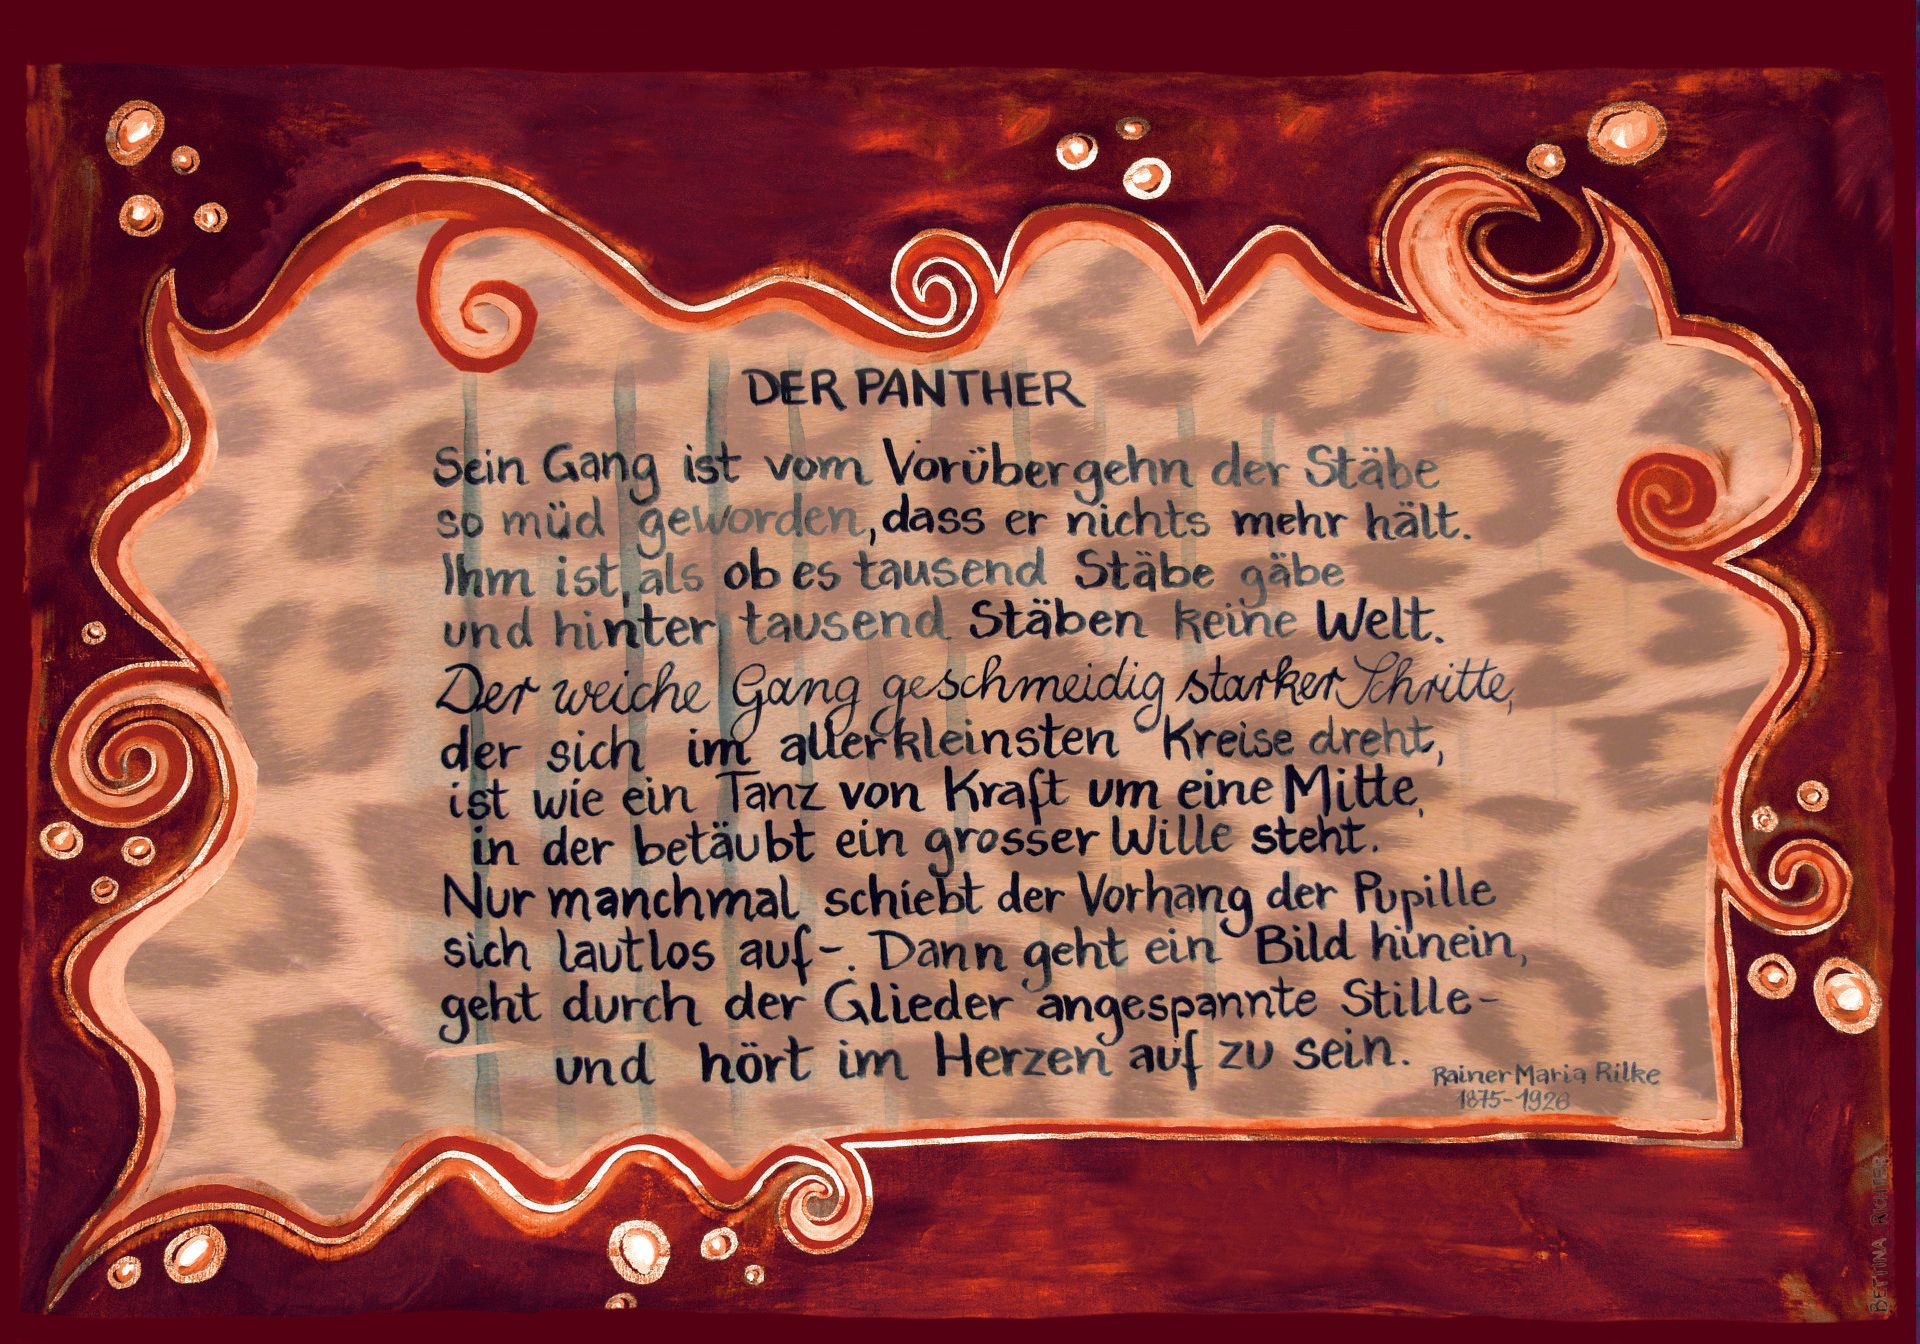 DER PANTHER
Sein Gang ist vom Vorübergehn der Stäbe
so müd geworden, dass er nichts mehr hält.
Ihm ist, als ob es tausend Stäbe gäbe
und hinter tausend Stäben keine Welt.
Der weiche Gang geschmeidig starker Schritte,
der sich im allerkleinsten Kreise dreht,
ist wie ein Tanz von Kraft um eine Mitte,
in der betäubt ein grosser Wille steht.
Nur manchmal schiebt der Vorhang der Pupille
sich lautlos auf-. Dann geht ein Bild hinein,
geht durch der Glieder angespannte Stille-
und hört im Herzen auf zu sein.
Rainer Maria Rilke
1875-1926
BETTINA RICHTER